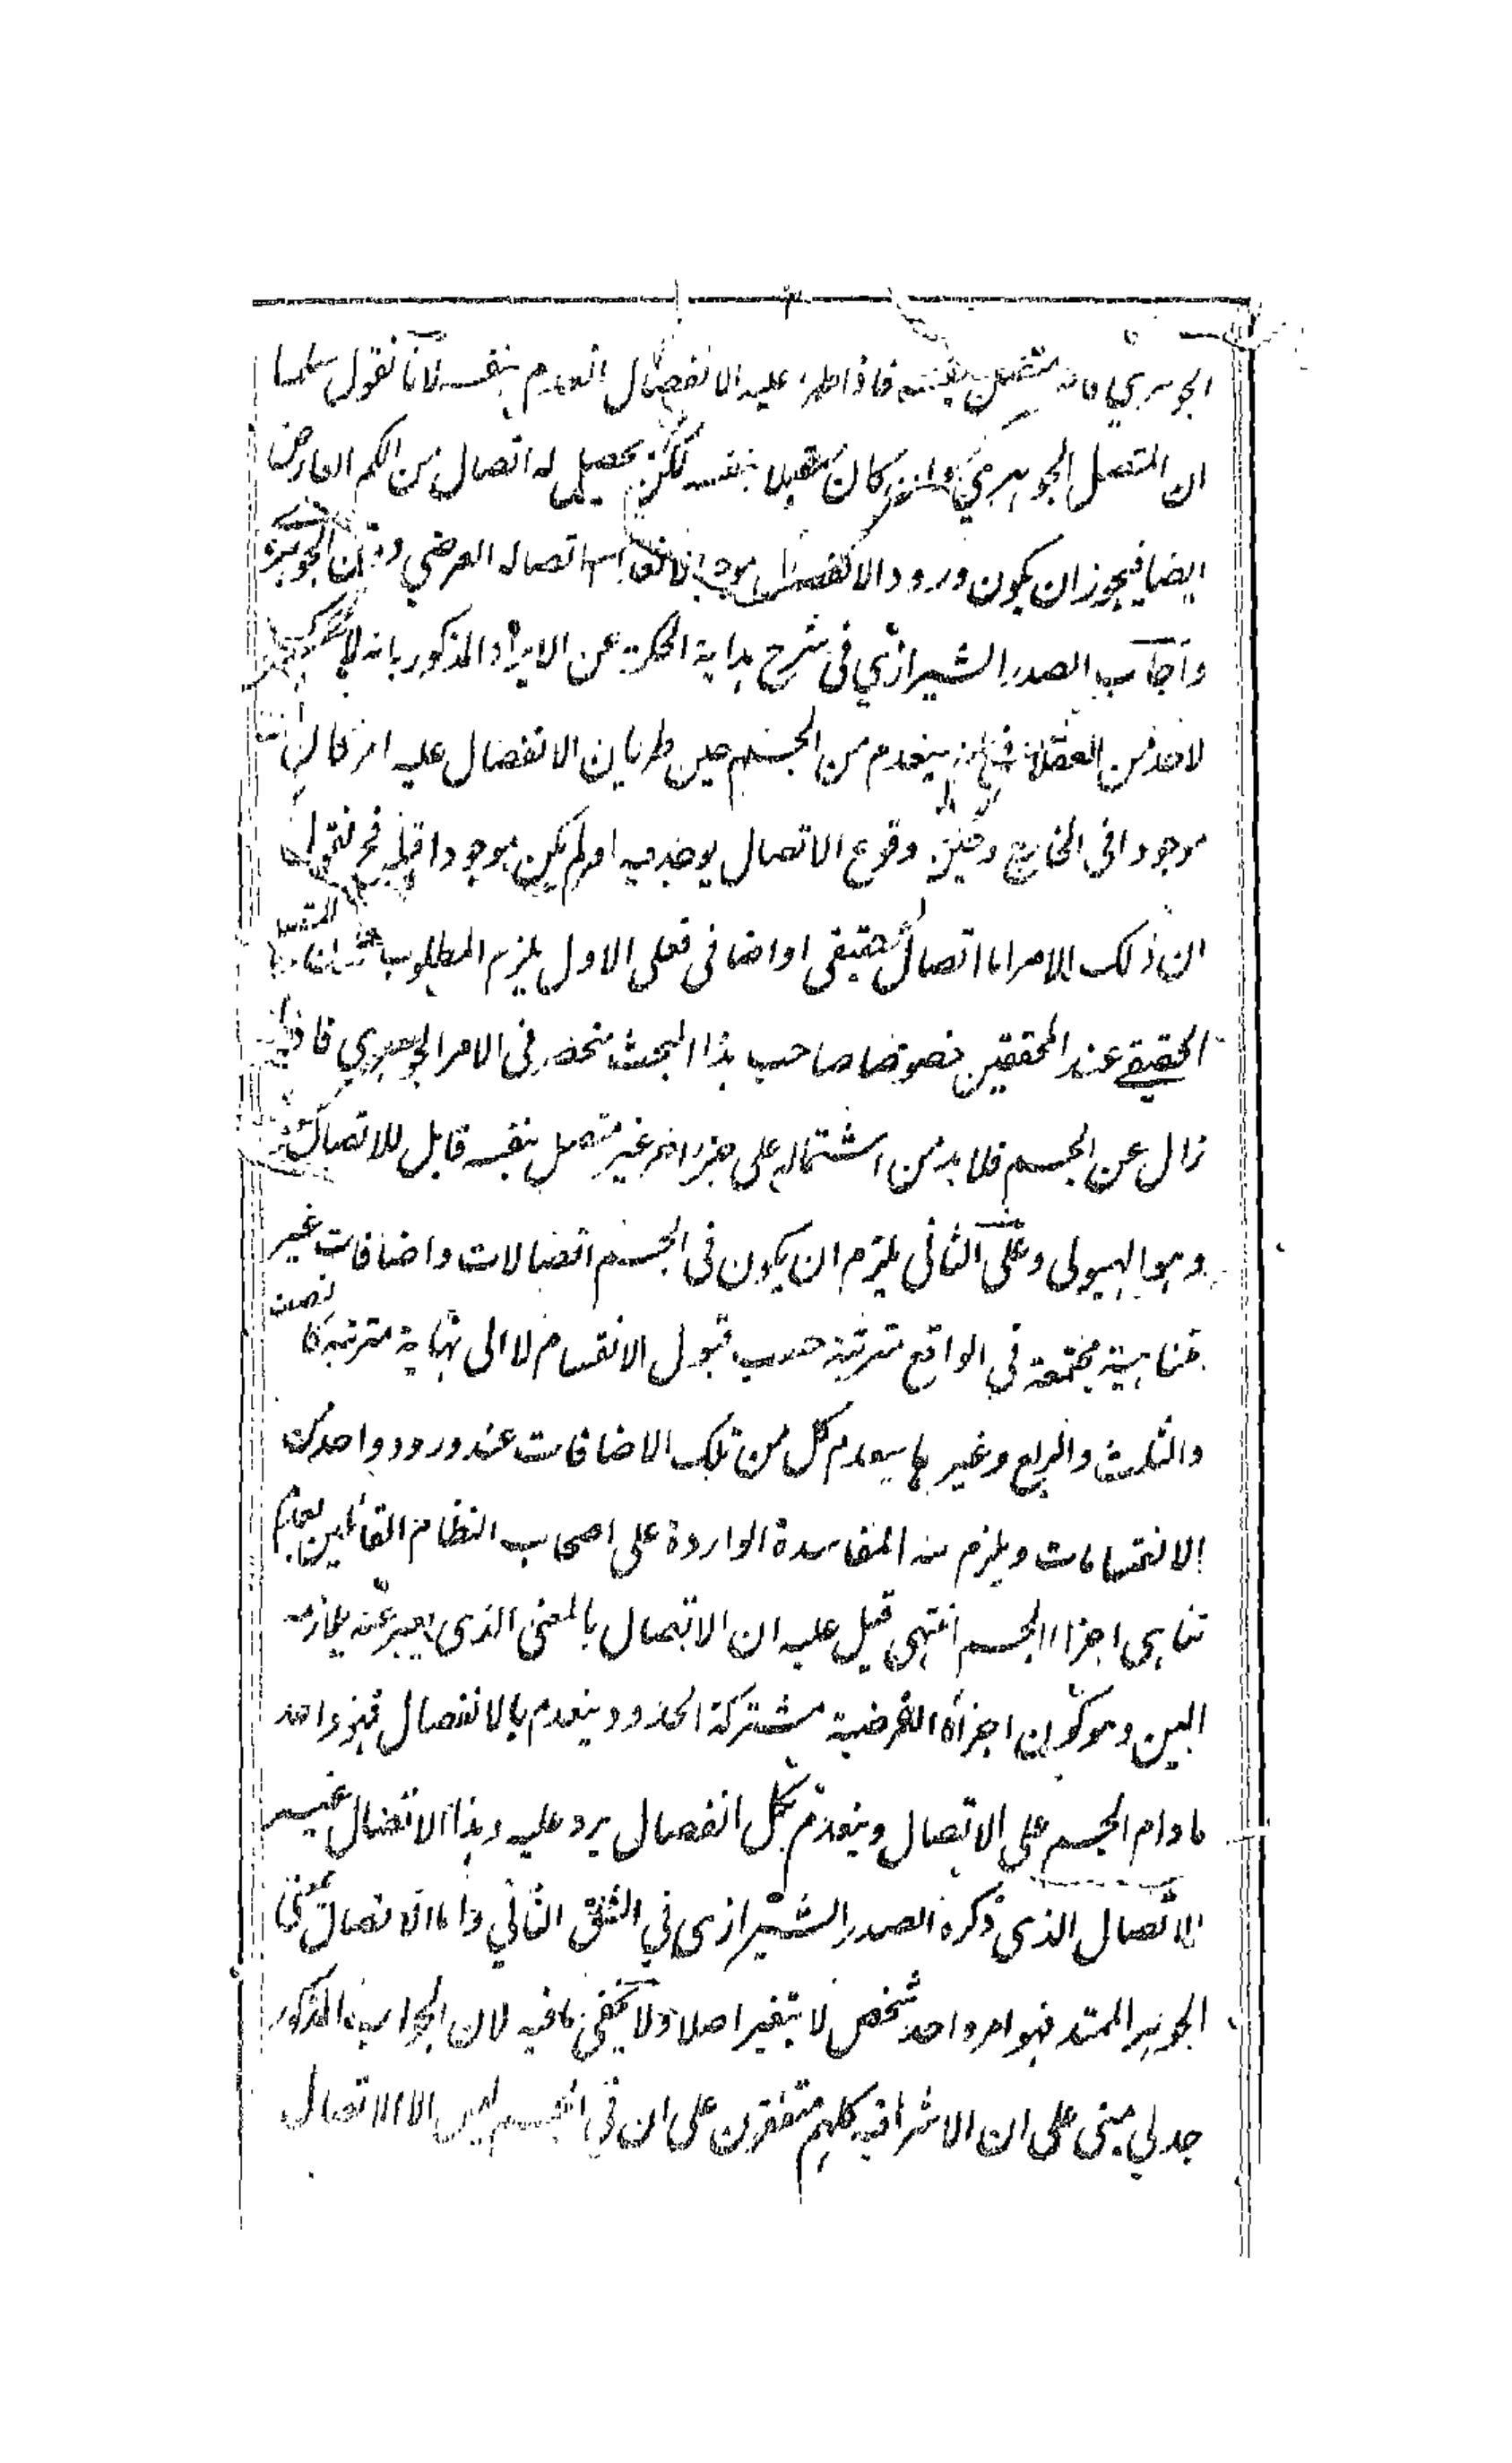 الجوهري فانه متصل بنفسه فاذا طرء عليه الانفصال انعدم بنفسه لانا نقول سلمنا
ان المتصل الجوهري وان كان متصلا بنفسه لكن يحصل له اتصال من الكم العارض
ايضا فيجوز ان يكون ورود الانفصال موجبا اتصاله العرضي دون الجوهرة
واجاب الصدر الشيرازي فى شرح هداية الحكمة عن الايراد المذكور بانه لا
لاحد من العقلاء فى ان ينعدم من الجسم حين طريان الانفصال عليه امر كان
موجودا فى الخارج وحين وقوع الاتصال يوجد فيه امر لم يكن موجودا قبله فح نقول
ان ذلك الامر اما اتصال حقيقى او اضافى فعلى الاول يلزم المطلوب المتصل
الحقيقى عند المحققين خصوصا صاحب هذا البحث منحصر فى الامر الجوهري فاذا
زال عن الجسم فلا بد من اشتماله على جزء اخر غير متصل بنفسه قابل للاتصال
وهو الهيولى وعلى الثانى يلزم ان يكون فى الجسم اتصالات واضافات غير
متناهية مجتمعة فى الواقع مترتبة حسب قبول الانقسام لا الى نهاية مترتبة كالنصف
والثلث والربع وغيرها ينعدم كل من تلك الاضافات عند ورود واحد من
الانقسامات ويلزم منه المفاسدة الواردة على اصحاب النظام القائلين بعدم
تناهى اجزاء الجسم انتهى قيل عليه ان الاتصال بالمعنى الذى يعبر عنه بملازمه
البين وهو كون اجزائه الفرضية مشتركة الحدود ينعدم بالانفصال فهو واحد
ما دام الجسم على الاتصال وينعدم بكل انفصال يرد عليه وهذا الاتصال غير
الاتصال الذى ذكره الصدر الشيرازى فى الشق الثاني واما الاتصال بمعنى
الجوهر الممتد فهو امر واحد شخص لا يتغير اصلا ولا يخفى ما فيه لان الجواب المذكور
جدلي مبنى على ان الاشراقيه كلهم متفقون على ان فى الجسم ليس الا الاتصال